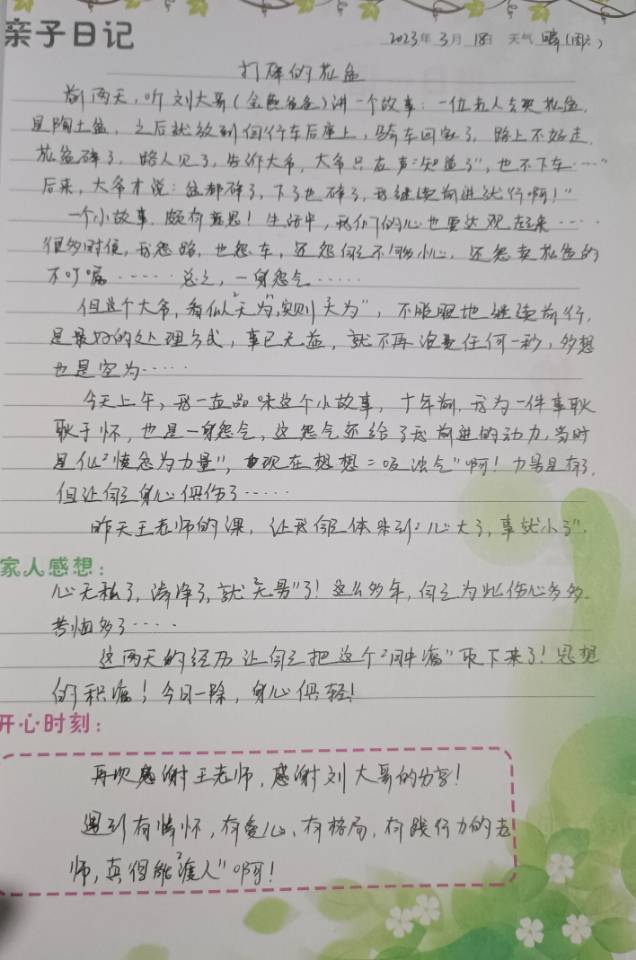 亲子日记
2023年 3月 18日 天气 晴(周六)
打碎的花盆
前两天,听刘大哥(金色爸爸)讲一个故事:一位老人去买花盆,
是陶土盆,之后就放到自行车后座上,骑车回家了,路上不好走,
花盆碎了,路人见了,告诉大爷,大爷只应声“知道了”,也不下车……
后来,大爷才说:盆都碎了,下了也碎了,我继续前进就行啊!”
一个小故事,颇有意思!生活中,我们的心也要达观起来……
很多时候,我怨路,也怨车,还怨自己不够小心,还怨卖花盆的
不叮嘱……总之,一身怨气……
但这个大爷,看似“无为”,实则“大为”,不眨眼地继续前行,
是最好的处理方式,事已无益,就不再浪费任何一秒,多想
也是空为……
今天上午,我一直品味这个小故事,十年前,我为一件事耿
耿于怀,也是一身怨气,这怨气还给了我前进的动力,当时
是化“愤怨为力量”,现在想想=吸浊气”啊!力量是有了,
但让自己身心俱伤了……
昨天王老师的课,让我自己体味到:心大了,事就小了”.
家人感想:
心无私了,清净了,就“无哥”了!这么多年,自己为此伤心多多,
苦恼多了……
这两天的经历让自己把这个“肿瘤”取下来了!思想
的积瘤!今日一除,身心俱轻!
开心时刻:
再次感谢王老师,感谢刘大哥的分享!
遇到有情怀,有爱心,有格局,有践行力的老
师,真得能“渡人”啊!